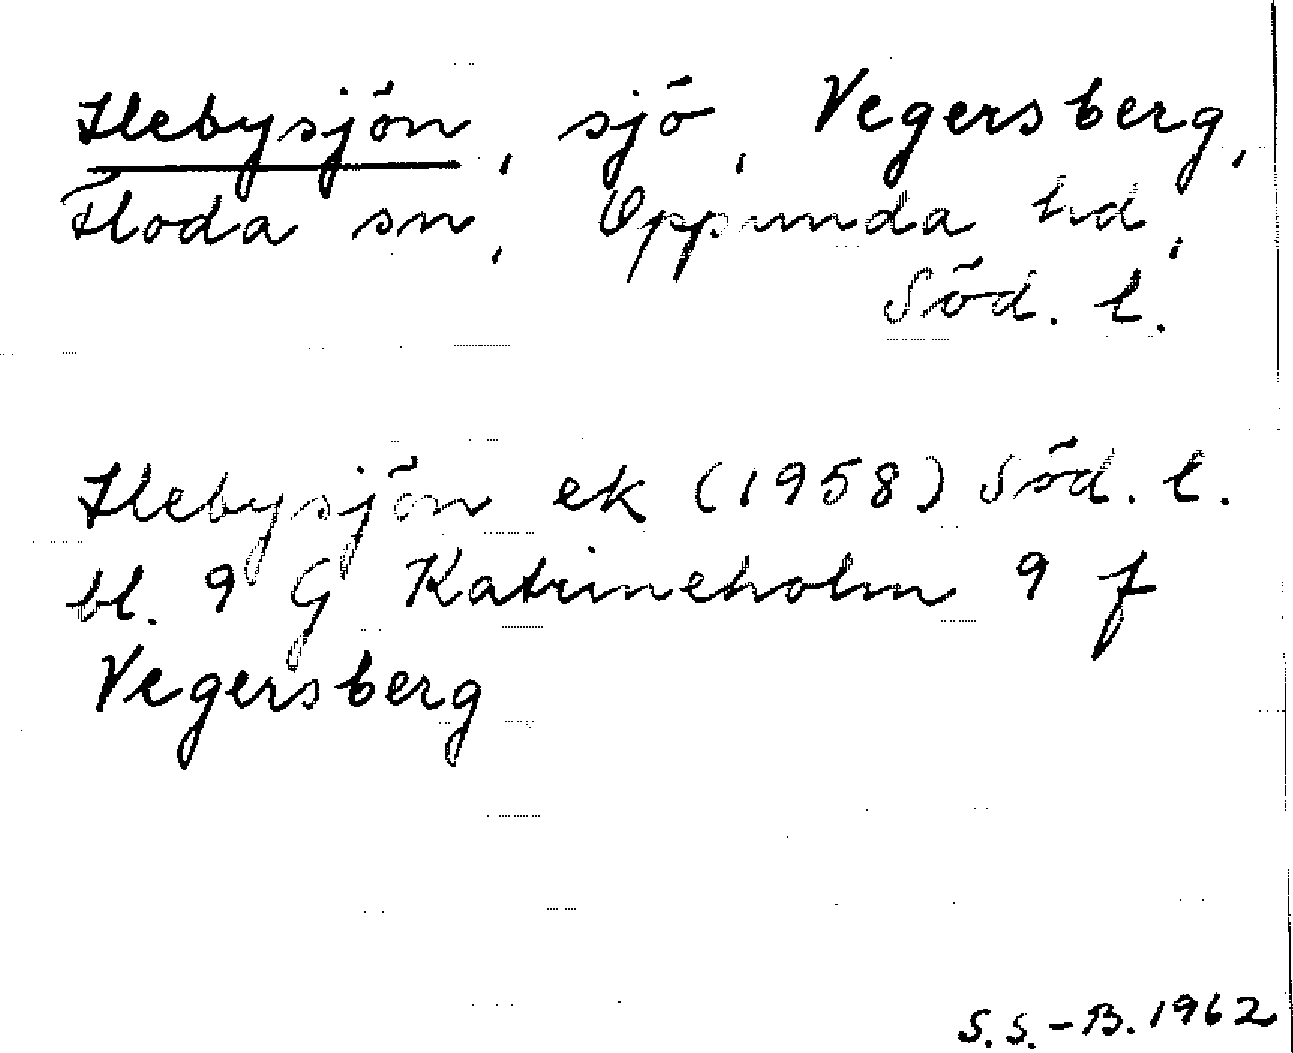 Hebysjön, sjö, Vegersberg,
Floda sn, Oppunda hd,
Söd. l.
Hebysjön ek (1958) Söd. l.
bl. 9 G Katrineholm 9 f
Vegersberg
S.S.-B. 1962